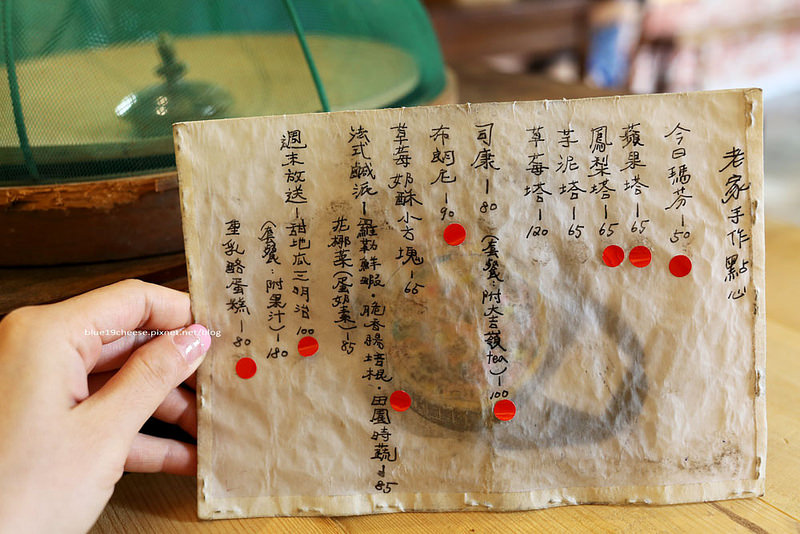 老家手作點心
今日瑪芬-50
蘋果塔-65
鳳梨塔-65
芋泥塔-65
草莓塔-120
司康-80(套餐:附大吉嶺tea)-100
布朗尼-90
草莓奶酥小方塊-65
法式鹹派-羅勒鮮蝦・脆香腸培根・田園時蔬-85
花椰菜(蛋奶素)-85
週末放送-甜地瓜三明治100
(套餐:附果汁)-180
重乳酪蛋糕-80
blue19cheese.pixnet.net/blog